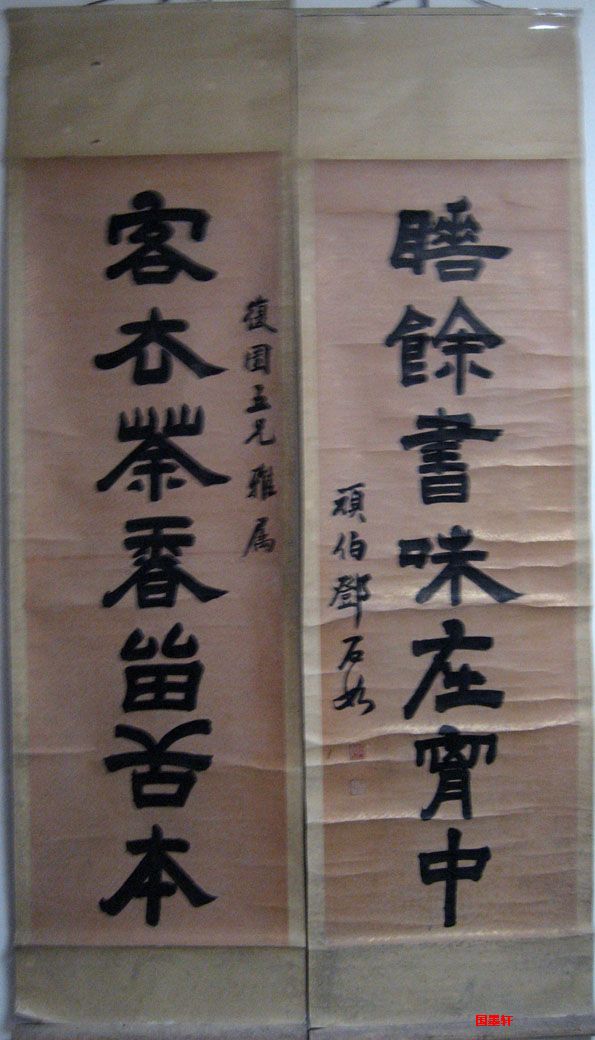 睡餘書味在胷中
頑伯鄧石如
復園五兄雅属
客去茶香留舌本
国墨轩